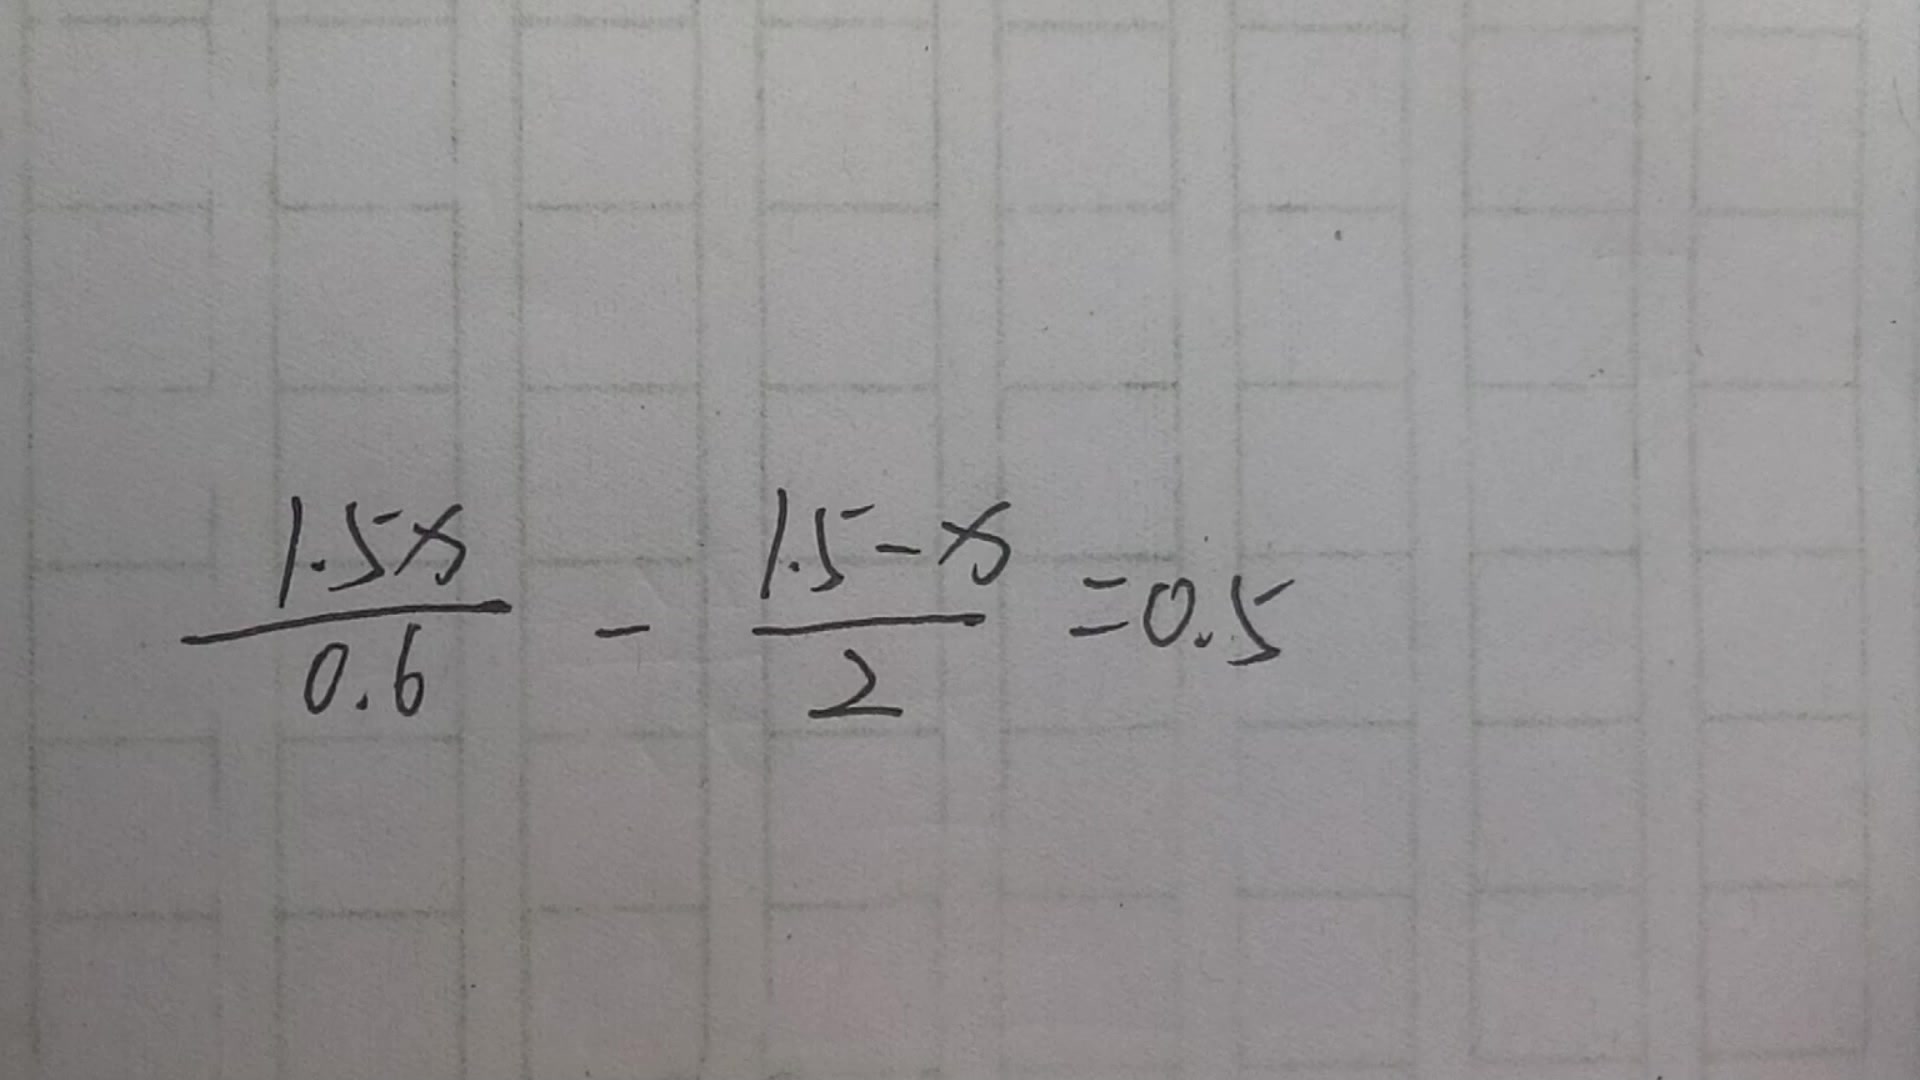 \frac{1.5x}{0.6} - \frac{1.5-x}{2} = 0.5